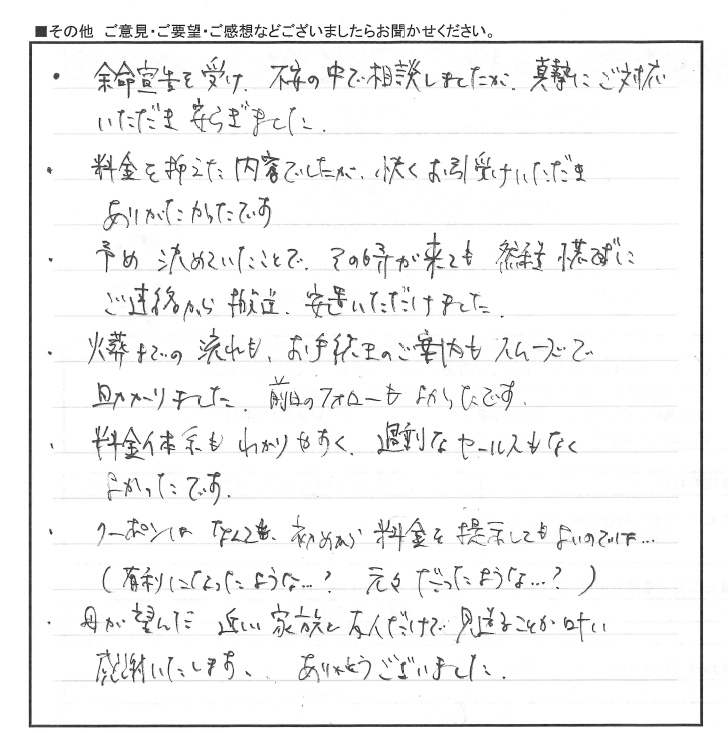 ■その他 ご意見・ご要望・ご感想などございましたらお聞かせください。
・余命宣告を受け、不安の中で相談しましたが、真摯にご対応
いただき安らぎました。
・料金を抑えた内容でしたが、快くお引受けいただき
ありがたかったです
・予め決めていたことで、その時が来ても 慌てずに
ご連絡から搬送、安置いただけました。
・火葬までの流れも、お手続きのご案内もスムーズで
助かりました。前日のフォローもよかったです。
・料金体系もわかりやすく、過剰なセールスもなく
よかったです。
・クーポンは なくても、初めから料金を提示してもよいのでは…
(有利になったような…? 元々だったような…?)
・母が望んだ 近い家族と友人だけで見送ることが叶い
感謝いたします。ありがとうございました。